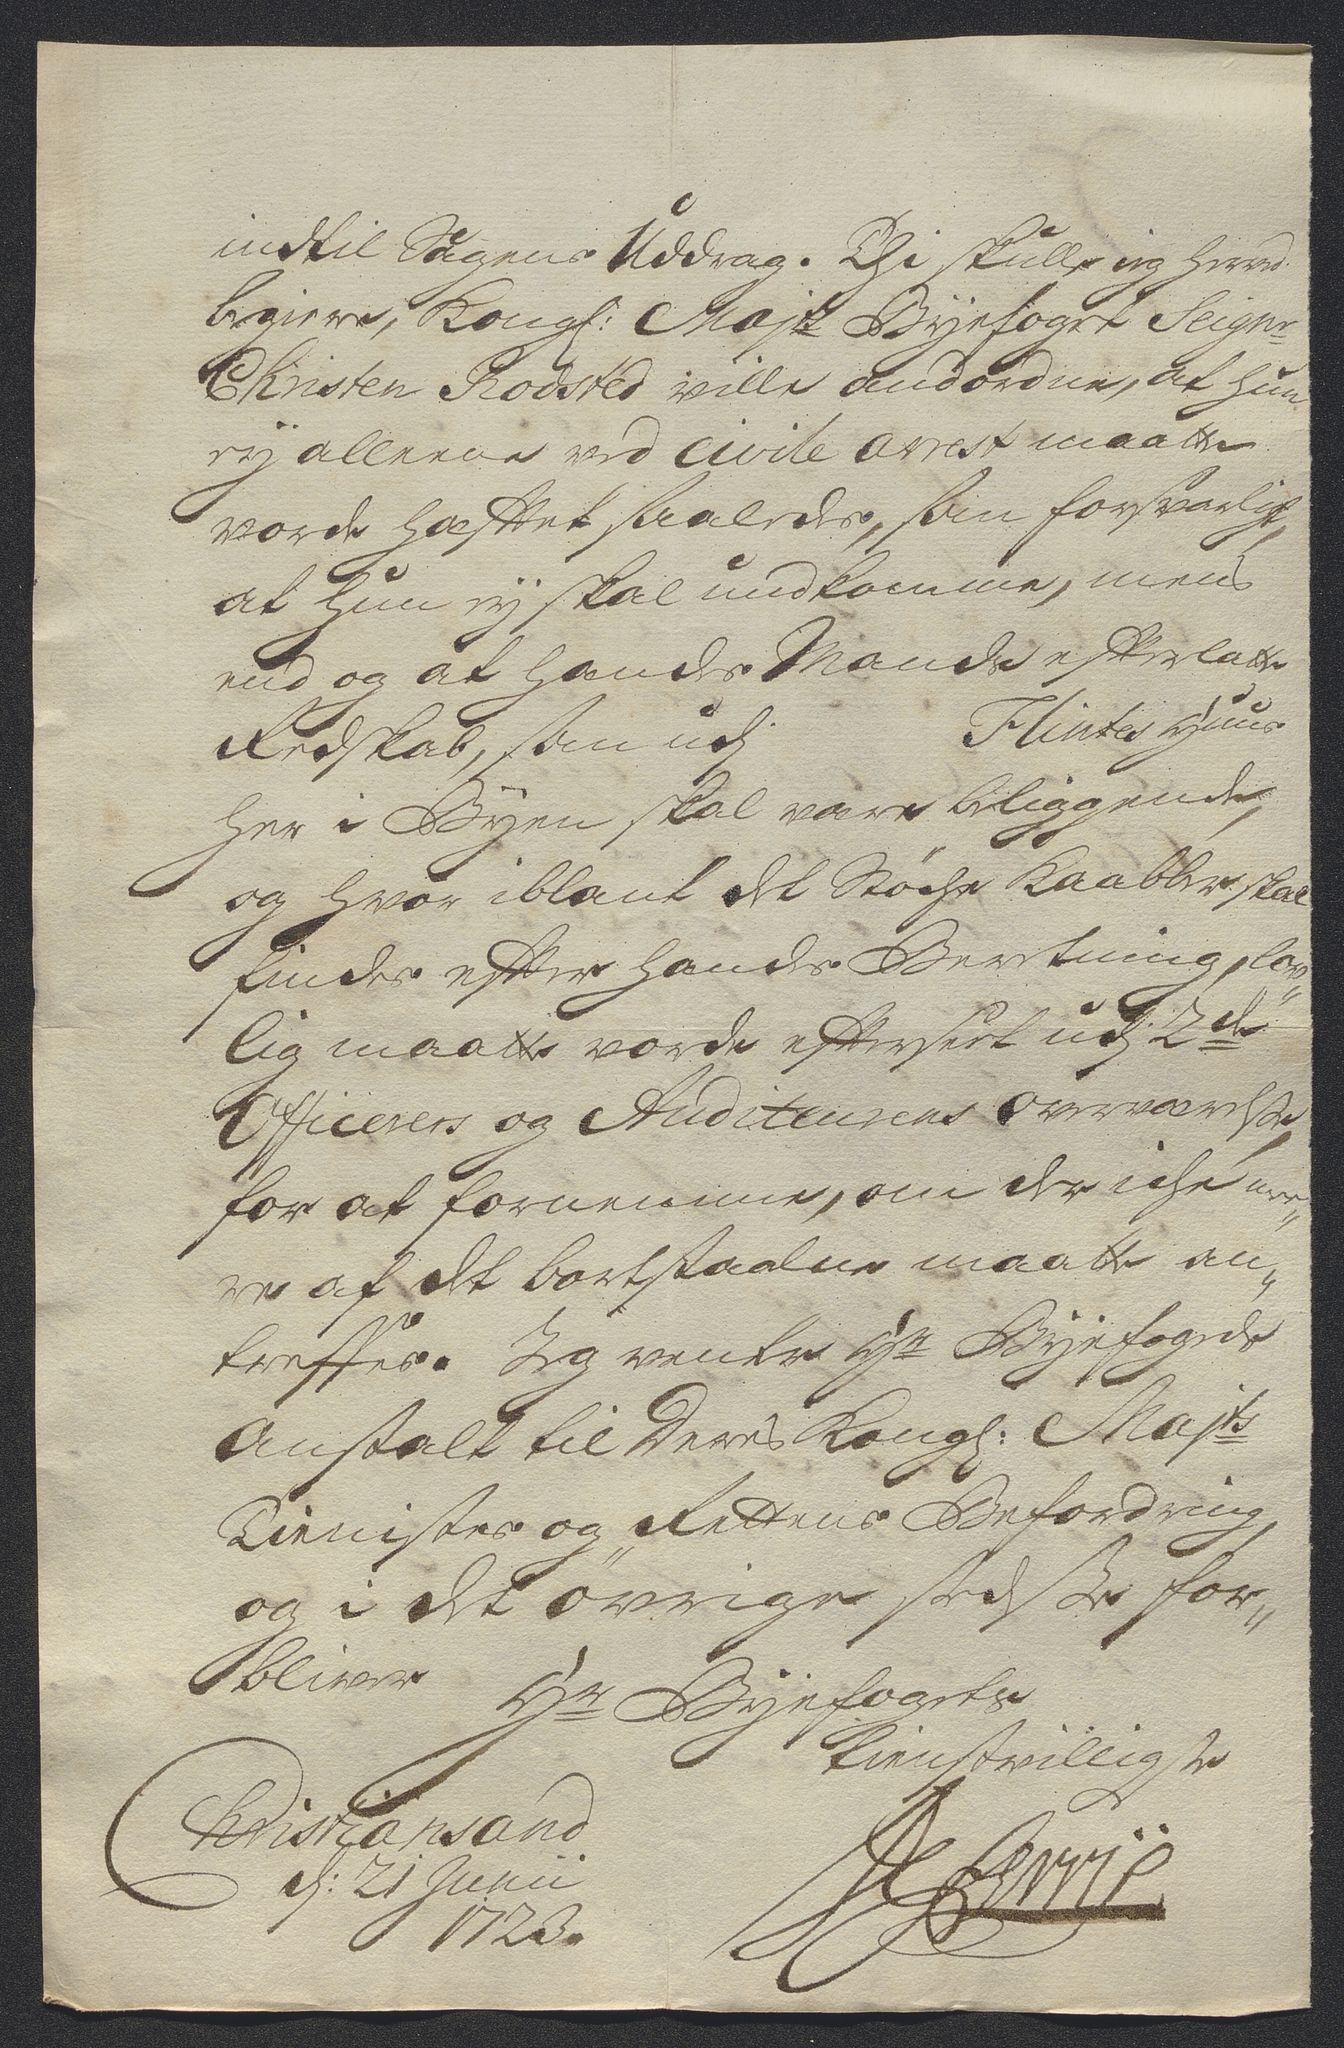 indtil Sagens Uddrag. Thi skulle ieg herved
begiere, Kongl: Majts Byefoget Seignr
Christen Rodsted ville andordne, at hun
ey alleene ved civile arrest maatte
vorde hæfftet saaledes, som forsvarligt,
at hun ey skal undkomme, mens
end og at handes Mands efterlatte
Redskab, som udj Flintes Huus
her i Byen skal være beliggende,
og hvor iblant det Støche Kaabber skal
findes effter handes Beretning, lov„
lig maatte vorde effterseet udj 2de
Officerers og Auditeurens overværelse,
for at fornemme, om der iche mee„
re af det bortstaalne maatte an„
treffes. Jeg venter Hr Byefogeds
Anstalt til Deres Kongl: Majts
Tienistes og Rettens Befordring,
og i det øvrige stedse for„
bliver Hr Byefogets
tienstvilligste
Christiansand
d: 21 Junii
1723.